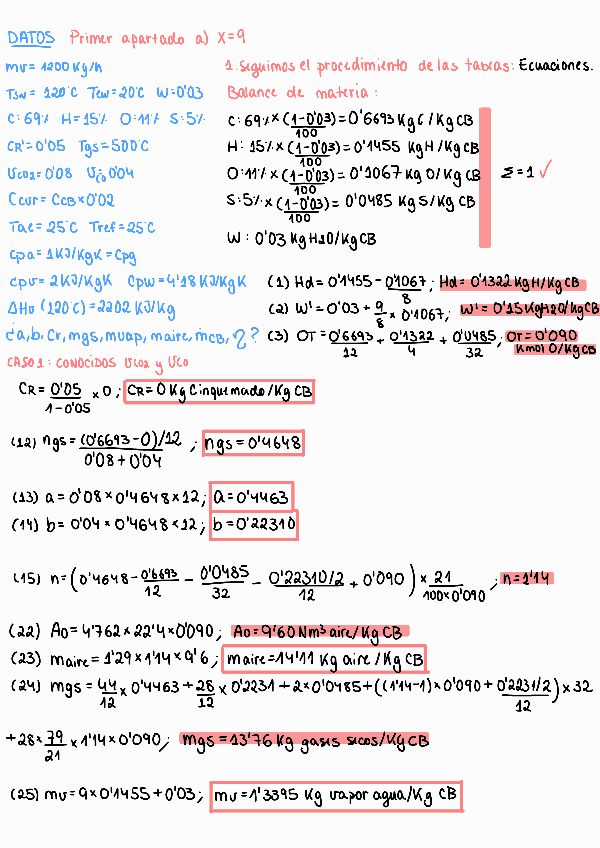 DATOS Primer apartado a) X=9
mv= 1200 Kg/h
Tsw= 120°C Tew= 20°C W=0'03
C: 69% H=15% O:11% S:5%
CR'=0'05 Tgs=500°C
υco2=0'08 υco=0'04
Ccvr= CCB×0'02
Tae= 25°C Tref= 25°C
Cpa= 1KJ/KgK = Cpg
Cpv= 2KJ/KgK Cpw=4'18KJ/KgK
ΔHv (120°C)=2202 KJ/Kg
¿a, b, Cr, mgs, mvap, maire, ṁCB, η?
CASO 1: CONOCIDOS υco2 y υco
1. Seguimos el procedimiento de las tablas: Ecuaciones.
Balance de materia:
C: 69% × (1-0'03)/100 = 0'6693 KgC/KgCB
H: 15% × (1-0'03)/100 = 0'1455 KgH/KgCB
O: 11% × (1-0'03)/100 = 0'1067 KgO/KgCB
S: 5% × (1-0'03)/100 = 0'0485 KgS/KgCB
Σ=1 ✓
W: 0'03 KgH2O/KgCB
(1) Hd= 0'1455 - 0'1067/8; Hd= 0'1322 KgH/KgCB
(2) W'= 0'03 + 9/8 × 0'1067; W'= 0'15 KgH2O/KgCB
(3) OT= 0'6693/12 + 0'1322/4 + 0'0485/32; OT= 0'090 Kmol O/KgCB
CR= 0'05/1-0'05 × 0; CR= 0 Kg Cinquemado/Kg CB
(12) ngs= (0'6693-0)/12 / 0'08+0'04; ngs= 0'4648
(13) a= 0'08×0'4648×12; a= 0'4463
(14) b= 0'04×0'4648×12; b= 0'22310
(15) n= (0'4648 - 0'6693/12 - 0'0485/32 - 0'22310/2/12 + 0'090) × 21/100×0'090; n= 1'14
(22) Ao= 4'762×22'4×0'090; Ao= 9'60 Nm³ aire/Kg CB
(23) maire= 1'29×1'14×9'6; maire= 14'11 Kg aire/Kg CB
(24) mgs= 44/12 × 0'4463 + 28/12 × 0'2231 + 2×0'0485 + ((1'14-1)×0'090 + 0'2231/2/12) × 32
+ 28 × 79/21 × 1'14×0'090; mgs= 13'76 Kg gases secos/Kg CB
(25) mv= 9×0'1455+0'03; mv= 1'3395 Kg vapor agua/Kg CB